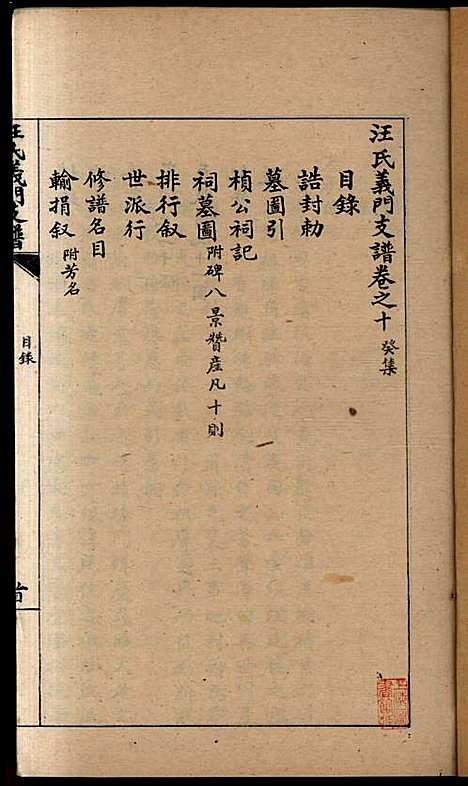 汪氏義門支譜卷之十 癸集
目錄
誥封勅
墓圖引
楨公祠記
祠墓圖 附碑八景贊産凡十則
排行叙
世派行
修譜名目
輸捐叙 附芳名
汪氏義門支譜
目錄
首